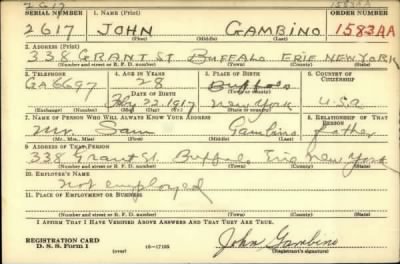 2617 1583AA
SERIAL NUMBER 1. NAME (Print) ORDER NUMBER
2617 JOHN GAMBINO 1583AA
(First) (Middle) (Last)
2. ADDRESS (Print)
338 GRANT St BUFFALO ERIE NEW YORK
(Number and street or R. F. D. number) (Town) (County) (State)
3. TELEPHONE 4. AGE IN YEARS 5. PLACE OF BIRTH 6. COUNTRY OF CITIZENSHIP
GA 6697 28 Buffalo
DATE OF BIRTH (Town or county)
Feby 22, 1917 New York U.S.A
(Exchange) (Number) (Mo.) (Day) (Yr.) (State or country)
7. NAME OF PERSON WHO WILL ALWAYS KNOW YOUR ADDRESS 8. RELATIONSHIP OF THAT PERSON
Mr. Sam Gambino father
(Mr., Mrs., Miss) (First) (Middle) (Last)
9. ADDRESS OF THAT PERSON
338 Grant St. Buffalo Erie New York
(Number and street or R. F. D. number) (Town) (County) (State)
10. EMPLOYER'S NAME
not employed
11. PLACE OF EMPLOYMENT OR BUSINESS
(Number and street or R. F. D. number) (Town) (County) (State)
I AFFIRM THAT I HAVE VERIFIED ABOVE ANSWERS AND THAT THEY ARE TRUE.
REGISTRATION CARD
D. S. S. Form 1 (over) 16-17105 John Gambino
(Registrant's signature)